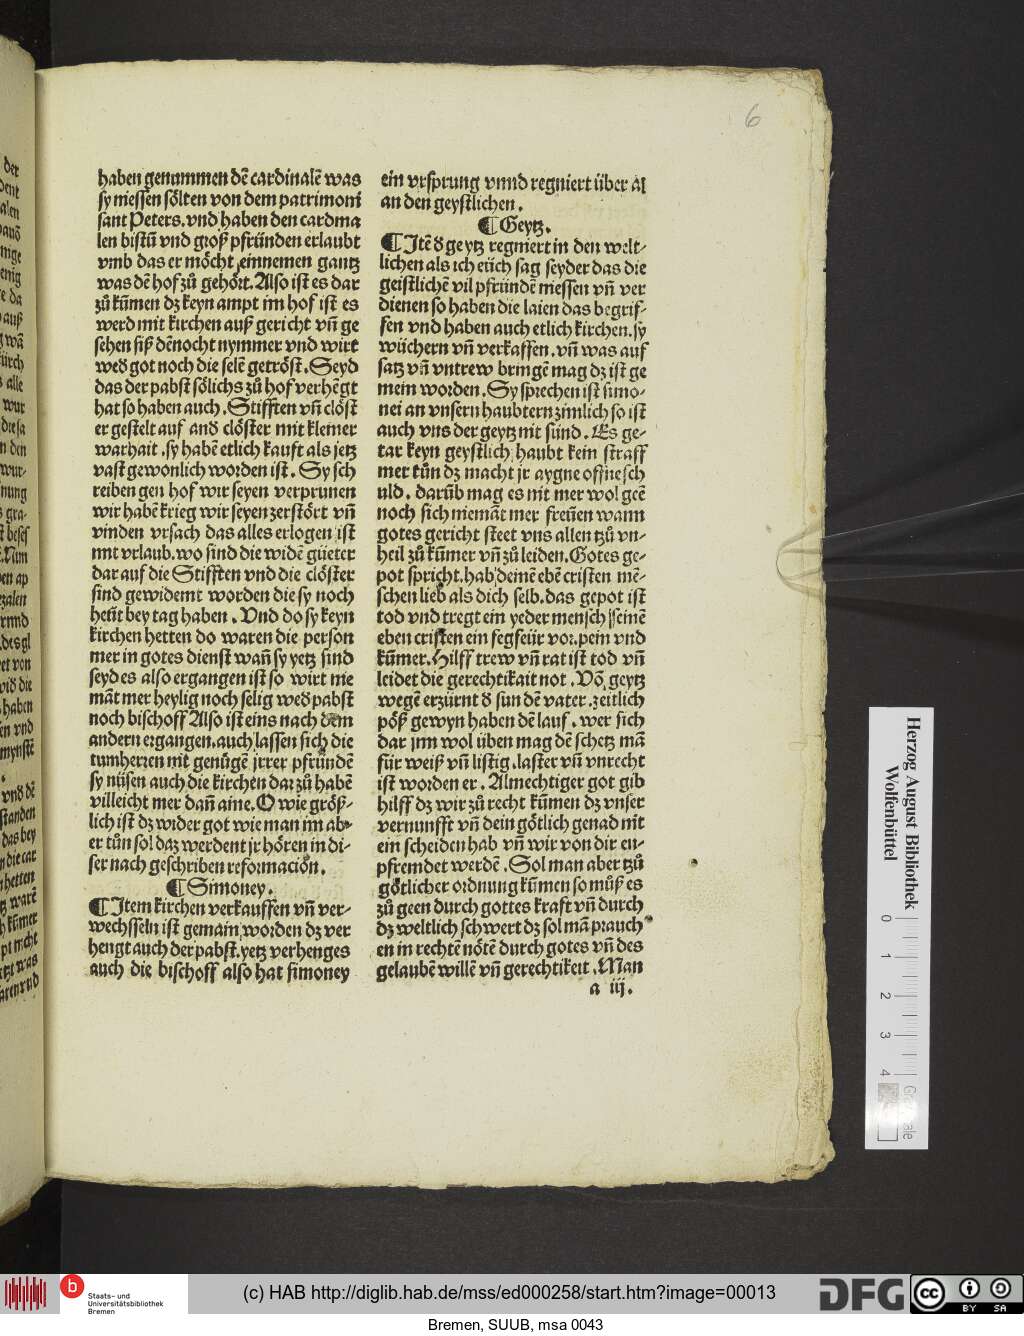 6
haben genummen dē cardinalē was
sy niessen sölten von dem patrimoni
sant Peters. vnd haben den cardina
len bistū vnd groß pfründen erlaubt
vmb das er möcht einnemen gantz
was dē hof zů gehört. Also ist es dar
zů kūmen dz keyn ampt im hof ist es
werd mit kirchen auß gericht vn̄ ge
sehen siß dēnocht nymmer vnd wirt
wed got noch die selē getröst. Seyd
das der pabst sölichs zů hof verhēgt
hat so haben auch. Stifften vn̄ clöst
er gestelt auf and clöster mit kleiner
warhait. sy habē etlich kauft als jetz
vast gewonlich worden ist. Sy sch
reiben gen hof wir seyen verprunen
wir habē krieg wir seyen zerstört vn̄
vinden vrsach das alles erlogen ist
mit vrlaub. wo sind die widē güeter
dar auf die Stifften vnd die clöster
sind gewidemt worden die sy noch
heüt bey tag haben. Vnd do sy keyn
kirchen hetten do waren die person
mer in gotes dienst wan̄ sy yetz sind
seyd es also ergangen ist so wirt nie
māt mer heylig noch selig wed pabst
noch bischoff Also ist eins nach dem
andern ergangen. auch lassen sich die
tumherren nit genügē jrrer pfründē
sy nüsen auch die kirchen dar zů habē
villeicht mer dan̄ aine. O wie größ-
lich ist dz wider got wie man im ab-
er tůn sol daz werdent jr hören in di-
ser nach geschriben reformación.
¶ Simoney.
¶ Item kirchen verkauffen vn̄ ver-
wechsseln ist gemain worden dz ver
hengt auch der pabst. yetz verhenges
auch die bischoff also hat simoney
ein vrsprung vnnd regniert über al
an den geystlichen.
¶ Geytz.
¶ Itē d geytz regniert in den welt-
lichen als ich eüch sag seyder das die
geistlichē vil pfründē niessen vn̄ ver
dienen so haben die laien das begrif-
fen vnd haben auch etlich kirchen. sy
wüchern vn̄ verkaffen. vn̄ was auf
satz vn̄ vntrew bringē mag dz ist ge
mein worden. Sy sprechen ist simo-
nei an vnsern haubtern zimlich so ist
auch vns der geytz nit sünd. Es ge-
tar keyn geystlich haubt kein straff
mer tůn dz macht jr aygne offne sch
uld. darūb mag es nit mer wol geē
noch sich niemāt mer freüen wann
gotes gericht steet vns allen tzů vn-
heil zů kūmer vn̄ zů leiden. Gotes ge-
pot spricht. hab deinē ebē cristen mē-
schen lieb als dich selb. das gepot ist
tod vnd tregt ein yeder mensch seinē
eben cristen ein fegfeür vor. pein vnd
kūmer. Hilff trew vn̄ rat ist tod vn̄
leidet die gerechtikait not. Vō geytz
wegē erzürnt d sun dē vater. zeitlich
pöß gewyn haben dē lauf. wer sich
dar jnn wol üben mag dē schetz mā
für weiß vn̄ listig. laster vn̄ vnrecht
ist worden er. Almechtiger got gib
hilff dz wir zů recht kūmen dz vnser
vernunfft vn̄ dein götlich genad nit
ein scheiden hab vn̄ wir von dir en-
pfremdet werdē. Sol man aber tzů
götlicher ordnung kūmen so můß es
zů geen durch gottes kraft vn̄ durch
dz weltlich schwert dz sol mā prauch
en in rechtē nötē durch gotes vn̄ des
gelaubē willē vn̄ gerechtikeit. Man
a iij.
Herzog August Bibliothek
Wolfenbüttel
0
1
2
3
4
Staats- und
Universitätsbibliothek
Bremen
(c) HAB http://diglib.hab.de/mss/ed000258/start.htm?image=00013
DFG
cc
BY SA
Bremen, SUUB, msa 0043